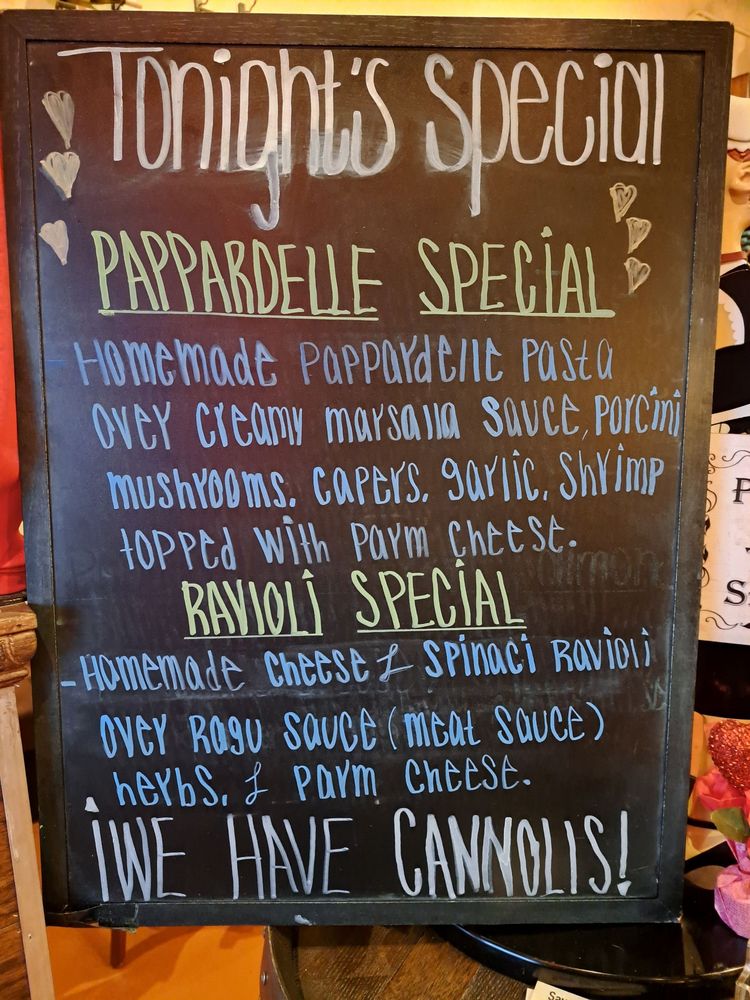 Tonight's Special
PAPPARDELLE SPECIAL
- Homemade Pappardelle Pasta
over creamy marsalla sauce, Porcini
mushrooms, capers, garlic, shrimp
topped with Parm cheese.
RAVIOLI SPECIAL
- Homemade cheese & spinaci Ravioli
over Ragu sauce (meat sauce)
herbs, & Parm cheese.
¡WE HAVE CANNOLIS!